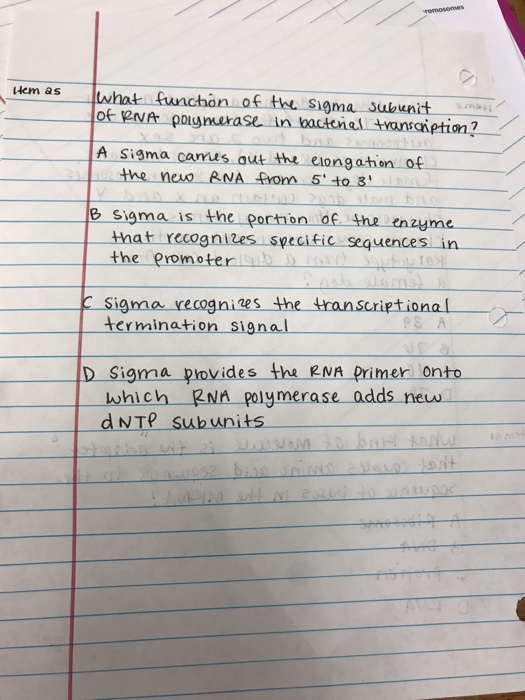 romosomes
Item 25
What function of the sigma subunit
of RNA polymerase in bacterial transcription?
A sigma carries out the elongation of
the new RNA from 5' to 3'
B sigma is the portion of the enzyme
that recognizes specific sequences in
the promoter
C sigma recognizes the transcriptional
termination signal
D sigma provides the RNA primer onto
which RNA polymerase adds new
dNTP subunits